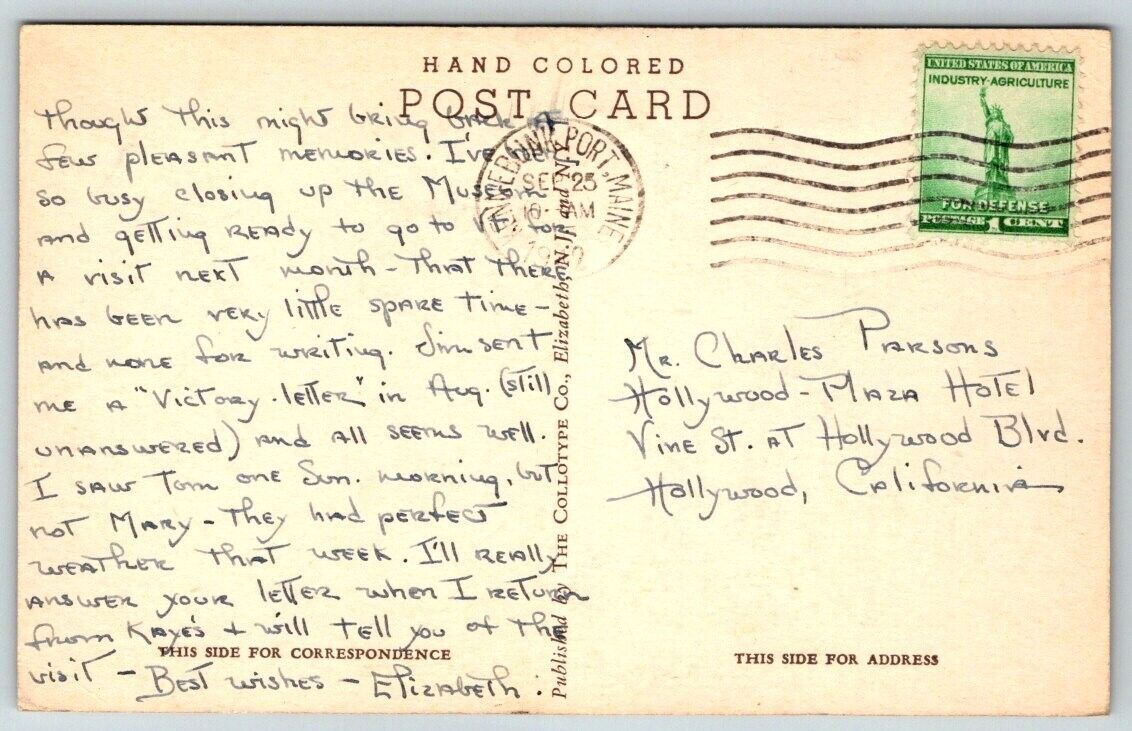 HAND COLORED
POST CARD
UNITED STATES OF AMERICA
INDUSTRY·AGRICULTURE
FOR DEFENSE
POSTAGE 1 CENT
KENNEBUNKPORT, MAINE
SEP 25
AM
Thought this might bring back a
few pleasant memories. I've been
so busy closing up the Museum
and getting ready to go to Vt. for
a visit next month - that there
has been very little spare time -
and none for writing. Jim sent
me a "Victory-letter" in Aug. (still
unanswered) and all seems well.
I saw Tom one Sun. morning, but
not Mary - They had perfect
weather that week. I'll really
answer your letter when I return
from Kaye's + will tell you of the
visit - Best wishes - Elizabeth.
THIS SIDE FOR CORRESPONDENCE
Published by THE COLLOTYPE Co., Elizabeth, N.J. and N.Y.
Mr. Charles Parsons
Hollywood-Plaza Hotel
Vine St. at Hollywood Blvd.
Hollywood, California
THIS SIDE FOR ADDRESS